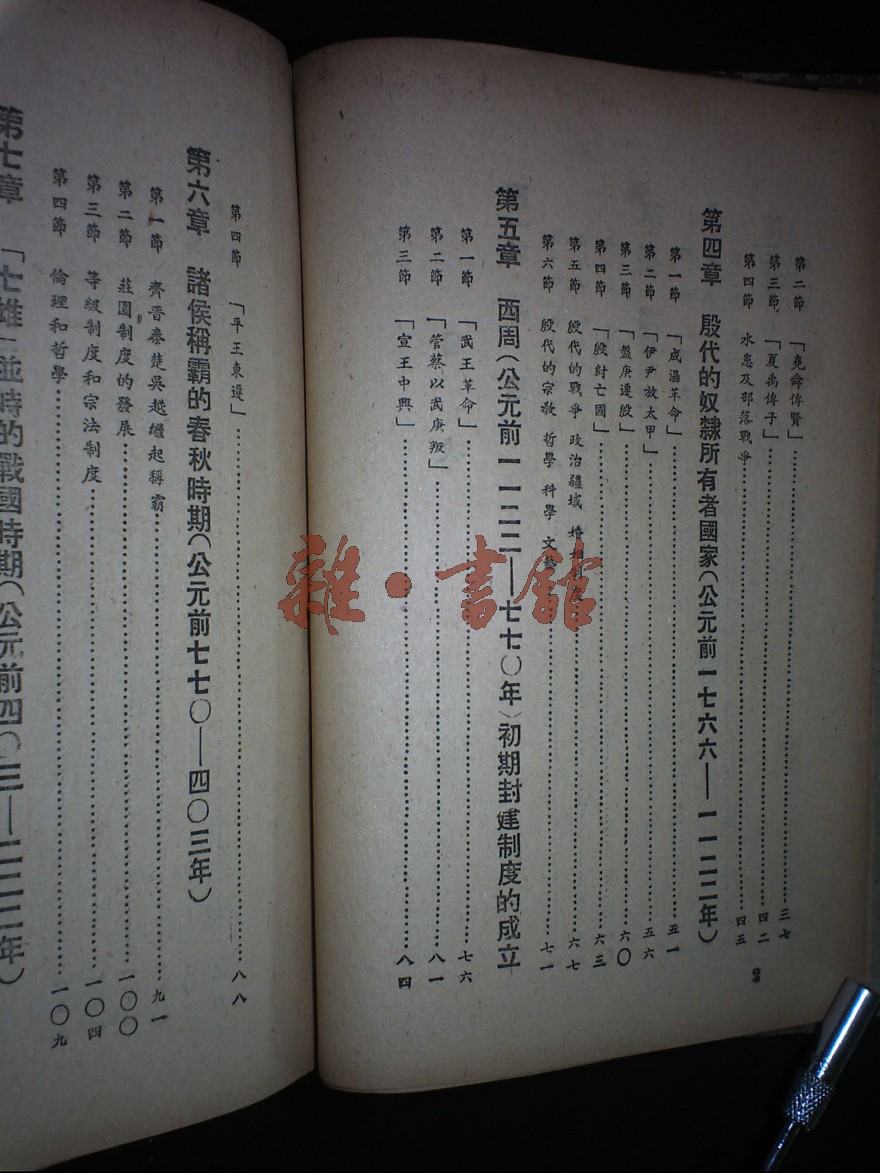 第二節 「堯舜傳賢」 三七
第三節 「夏禹傳子」 四二
第四節 水患及部落戰爭 四五
第四章 殷代的奴隸所有者國家(公元前一七六六—一一二二年)
第一節 「成湯革命」 五一
第二節 「伊尹放太甲」 五六
第三節 「盤庚遷殷」 六〇
第四節 「殷紂亡國」 六三
第五節 殷代的戰爭 政治疆域 六七
第六節 殷代的宗教 哲學 科學 文藝 七一
第五章 西周(公元前一一二二—七七〇年)初期封建制度的成立
第一節 「武王革命」 七六
第二節 「管蔡以武庚叛」 八一
第三節 「宣王中興」 八四
2
第四節 「平王東遷」 八八
第六章 諸侯稱霸的春秋時期(公元前七七〇—四〇三年)
第一節 齊晉秦楚吳越繼起稱霸 九一
第二節 莊園制度的發展 一〇〇
第三節 等級制度和宗法制度 一〇四
第四節 倫理和哲學 一〇九
第七章 「七雄」並時的戰國時期(公元前四〇三—二二二年)
雜·書館